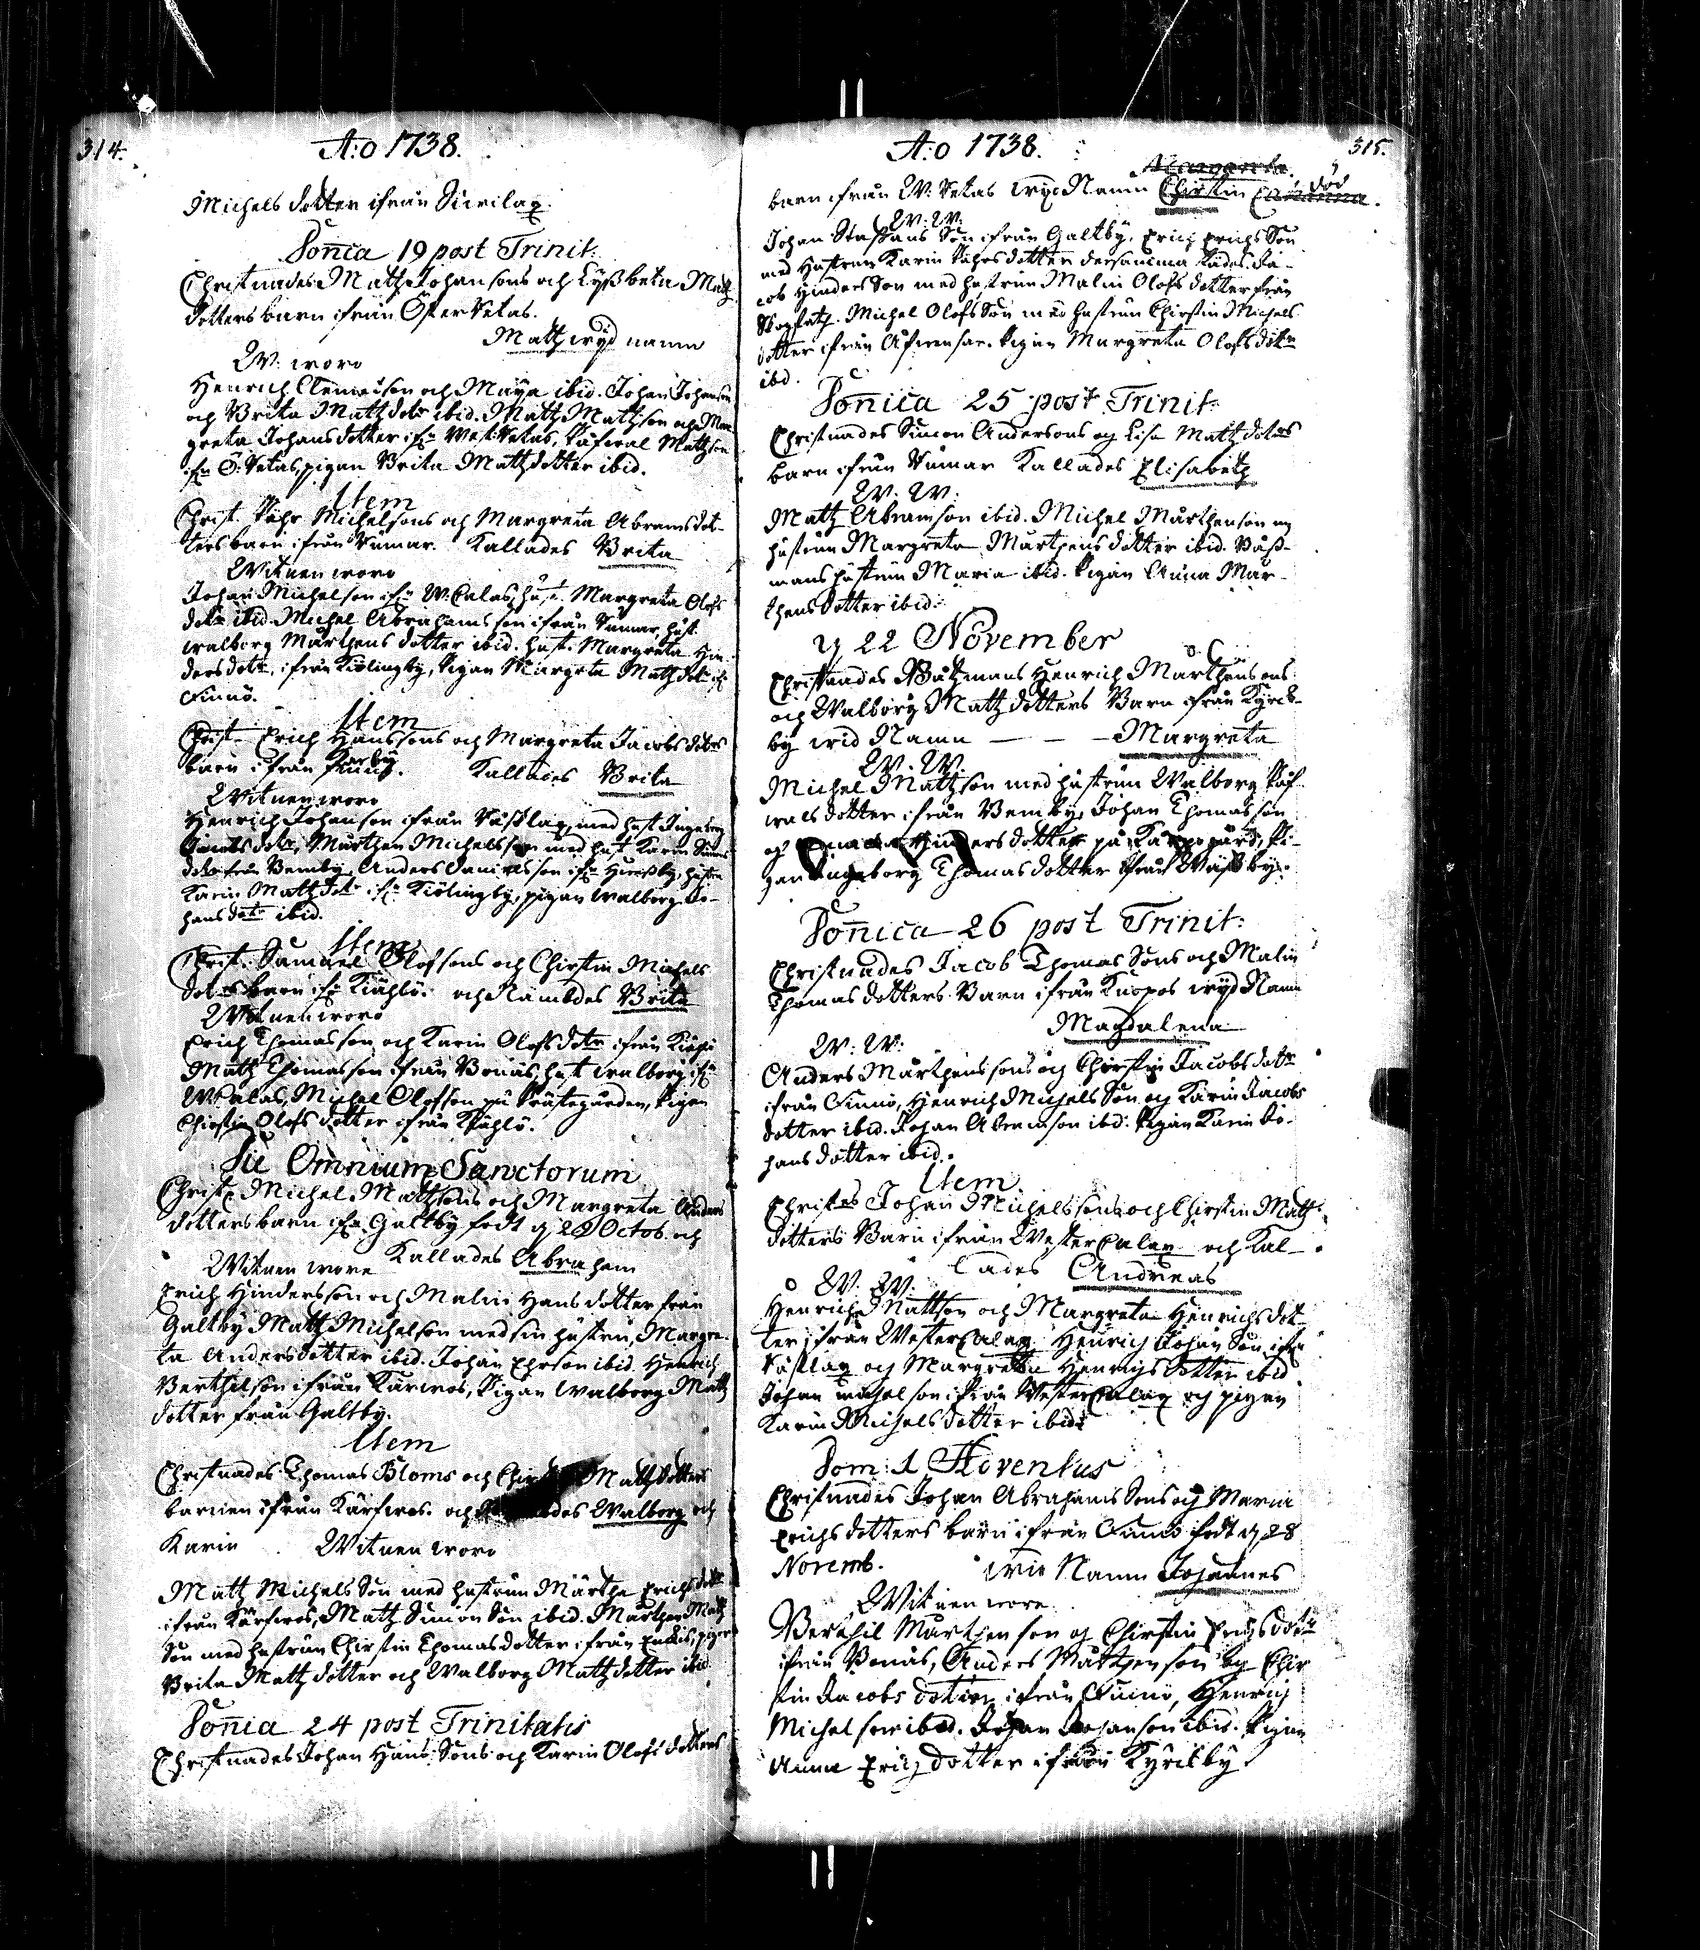 314.
A:o 1738.
Michels dotter ifrån
Dom̄ica 19 post Trinit:
Christnades Matz Johansons och Lyßbeta Matz
dotters barn ifrån Öster Retas.
Matz wyd namn
W: woro
Henrich Clemetson och Maija ibid. Johan Johanson
och Brita Matz dotr ibid. Matz Matzson och Mar
greta Johans dotter if:n West: Retas, Matzson
if:n Ö: Retas, pigan Brita Matzdotter ibid.
Item
Christ. Michelsons och Margreta Abramsdot-
ters barn ifrån Rumar. Kallades Brita
Witnen woro
Johan Michelson if:n W: hust. Margreta Olofs
dotr ibid. Michel Abrahamsson ifrån Rumar, hust.
Walborg Mårthens dotter ibid. hust. Margreta Hin
dersdotr ifrån Kiölingby, Pigan Margreta Matzdotr if:
Finnö.
Item
Christ. Erich Hanssons och Margreta Jacobsdotrs
barn ifrån Kallades Brita
Witnen woro
Henrich Johanson ifrån med hust Ingeborg
dotr, Mårthen Michelsson med hust Karin Simons
dotr från Bemby, Anders Danielsson if:n hustru
Karin Matz dotr if:n Kiölingby, pigan Walborg Jo-
hansdotr ibid.
Item
Christ. Samuel Olofsons och Chirstin Michels
dotrs barn if: och Nämbdes Brita
Witnen woro
Erich Thomasson och Karin Olofsdotr ifrån
Matz Thomasson ifrån Bonäs, hust Walborg if:n
Michel Olofson på Prästegården, Pigan
Chirstin Olofs dotter ifrån
Die Omnium Sanctorum
Christ. Michel Mattsons och Margreta Anders
dotters barn if:n Galtby födt d 29 Octob. och
Kallades Abraham
Witnen wore
Erich Hindersson och Malin Hansdotter från
Galtby Matz Michelson med sin hustru, Margre-
ta Andersdotter ibid. Johan Ehrson ibid. Henrich
Berthilson ifrån Kårwos, Pigan Walborg Matz
dotter från Galtby.
Item
Christnades Thomas Bloms och Matzdotters
barnen ifrån Kårfwos. och Walborg och
Karin Witnen woro
Matz Michels Son med hustrun Märtha Erichs dotr
ifrån Kårfwos, Matz Simon Son ibid. Mårthen Matz
Son med hustrun Chirstin Thomasdotter ifrån
Brita Matz dotter och Walborg Matzdotter ibid
Dom̄ica 24 post Trinitatis
Christnades Johan Hans Sons och Karin Olofs dotters
A:o 1738.
315.
Margareta
död
barn ifrån W: Retas wyd Namn Chirstin
W: W:
Johan Staffans Son ifrån Galtby, Erich Erichs Son
med Hustrun Karin dotter dersamma Ja-
cob Hinders Son med hustrun Malin Olofs dotter från
Michel Olofs Son med hustrun Chirstin Michels
dotter ifrån Pigan Margreta Olofs dotr
ibd.
Dom̄ica 25 post Trinit:
Christnades Simon Andersons og Lisa Matz dotrs
barn ifrån Rumar Kallades Elisabetz
W: W:
Matz Abramson ibid. Michel Mårthenson og
hustrun Margreta Mårthens dotter ibid. Båß-
mans hustrun Maria ibid. Pigan Anna Mår-
thensdotter ibid.
d 22 November
Christnades Båtzmans Henrich Mårthens ons
och Walborg Matzdotters Barn ifrån Kyrck-
by wid Namn — — — Margreta
W: W:
Michel Matzson med hustrun Walborg
wals dotter ifrån Bemby, Johan Thomasson
og Hindersdotter på Pi-
gan Ingeborg Thomasdotter ifrån
Dom̄ica 26 post Trinit:
Christnades Jacob Thomas Sons och Malin
Thomasdotters Barn ifrån wyd Namn
Magdalena
W: W:
Anders Mårthenssons og Chirstin Jacobs dotr
ifrån Finnö, Henrich Michels Son og Karin Jacobs
dotter ibid. Johan Abramson ibd: Pigan Karin Jo-
hans dotter ibid.
Item
Christes Johan Michelssons och Chirstin Matz
dotters Barn ifrån Wester och Kal-
lades Andreas
W: W:
Henrich Mattson och Margreta Henrichsdot
ter ifrån Wester Henrich Johan Son if:n
og Margretha Henrichs dotter ibid
Johan Michelson ifrån Wester og pigan
Karin Michelsdotter ibid
Dom: 1 Adventus
Christnades Johan Abrahams Sons og Maria
Erichs dotters barn ifrån Finnö födt d 28
Novemb. wid Namn Johannes
Witnen wore
Berthil Mårthenson og Chirstin Erichsdotr
ifrån Bonäs, Anders Mårthenson og Chir
stin Jacobs dotter ifrån Finnö, Henrich
Michelson ibid. Johan Johanson ibid. Pigan
Anna Erichdotter ifrån Kyrckby